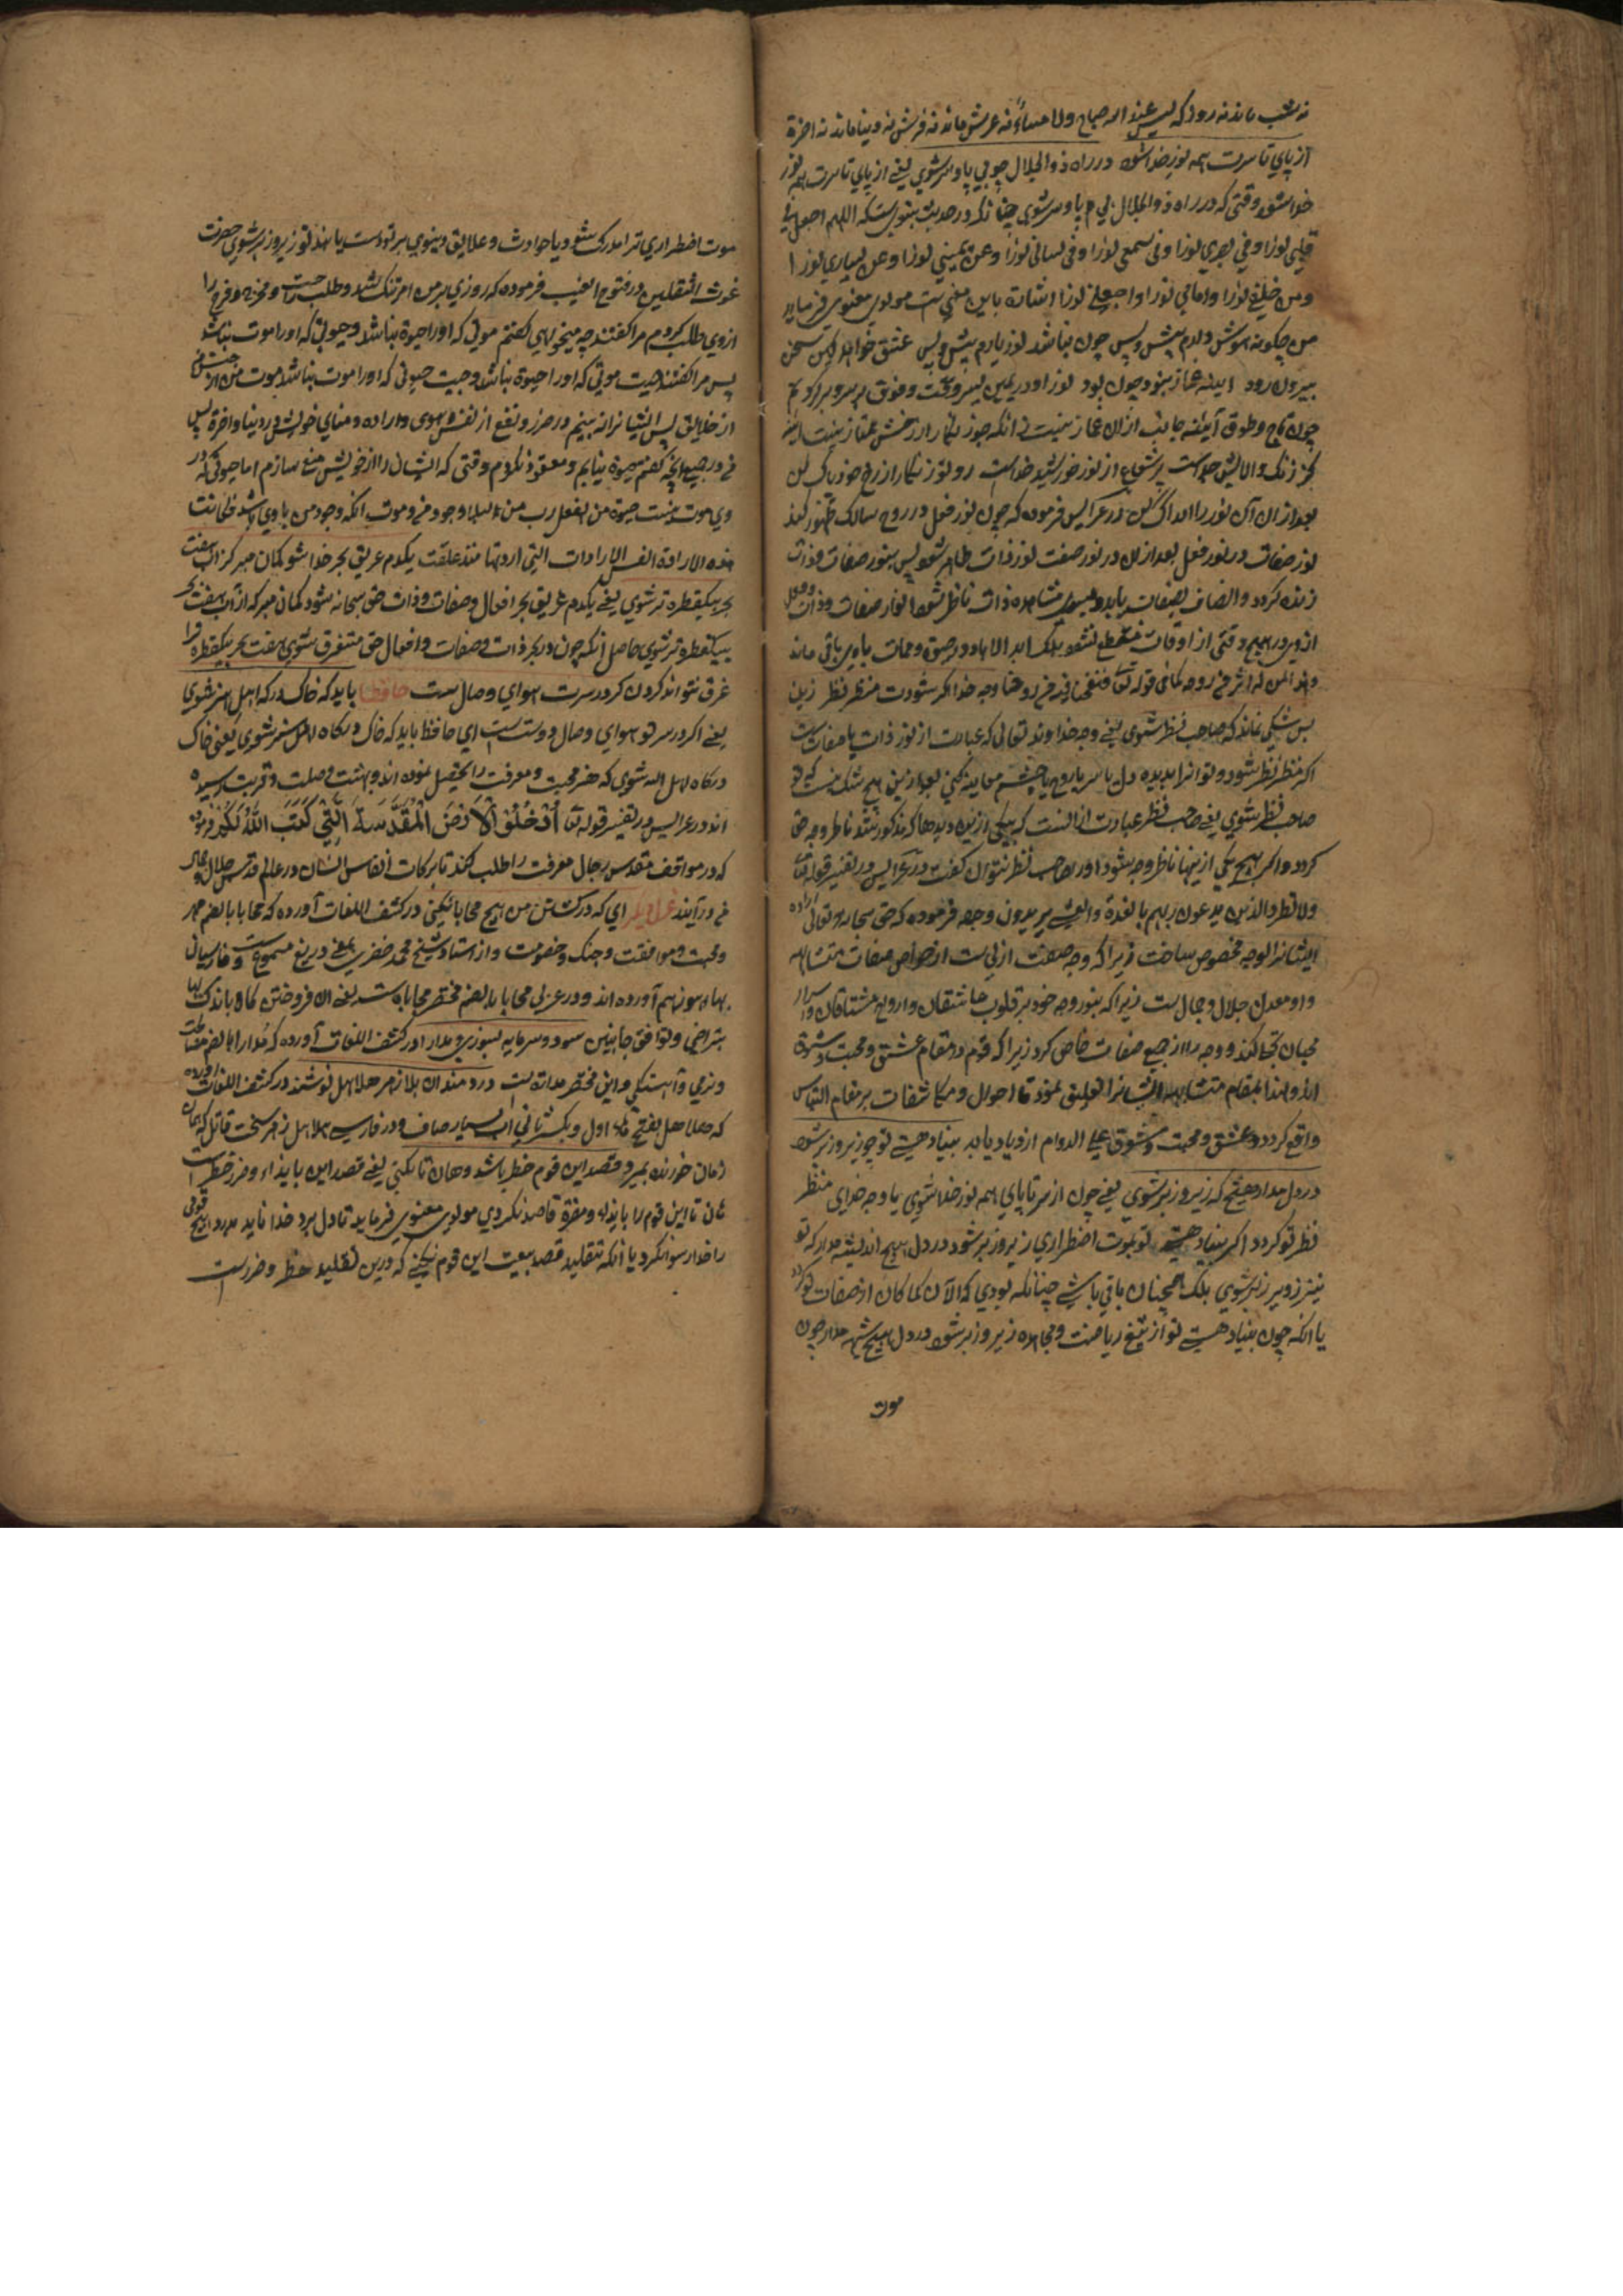 نه شب ماند نه روز که لیس عند الله صباح ولا مساء نه عرش ماند نه فرش نه دنیا ماند نه اخرة
از پای تا سرت همه نور خدا شود در راه ذو الجلال چو بی پا و سر شوی یعنی از پای تا سرت همه نور
خدا شود وقتی که در راه ذو الجلال بی پا و سر شوی چنانکه در حدیث نبوی ست که اللهم اجعل فی
قلبی نورا و فی بصری نورا و فی سمعی نورا و فی لسانی نورا و عن یمینی نورا و عن یساری نورا
و من خلفی نورا و امامی نورا و اجعلنی نورا اشارة باین معنی ست مولوی معنوی فرماید
من چگونه هوش دارم پیش و پس چون نباشد نور یارم پیش و پس عشق خواهد کین سخن
بیرون رود اینه غماز نبود چون بود نور او در یمین یسر و تحت و فوق بر سر و بر گردنم
چون تاج و طوق آینه جانت ازان غماز نیست زانکه زنگار از رخش ممتاز نیست اینه
کز زنگ و الایش جداست پر شعاع از نور خورشید خداست رو تو زنگار از رخ خود پاک کن
بعد ازان آن نور را ادراک کن در عرایس فرموده که چون نور فعل در روح سالک ظهور کند
نور صفات در نور فعل بعد ازان در نور صفت نور ذات ظاهر شود پس بنور صفات و ذات
زنده گردد و اتصاف بصفات یابد و بسوی مشاهده ذات ناظر شود انوار صفات و ذات و فعل
ازوی در هیچ وقتی از اوقات منقطع نشود بلکه ابد الاباد در حیوة و ممات باوی باقی ماند
وجه خدا اگر شودت منظر نظر زین
پس شکی نماند که صاحب نظر شوی یعنی وجه خداوند تعالی که عبارت از نور ذات یا صفات ست
اگر منظر نظر شود و تو انرا بدیده دل یا سر یا روح یا چشم معاینه کنی بعد ازین هیچ شک نیست که تو
صاحب نظر شوی یعنی صاحب نظر عبارت از انست که بیکی ازین دیدها که مذکور شد ناظر وجه حق
گردد و اگر بهیچ یکی ازینها ناظر وجه نشود اورا صاحب نظر نتوان گفت در عرایس در تفسیر قوله تعالی
ولا تطرد الذین یدعون ربهم بالغدوة والعشی یریدون وجهه فرموده که حق سبحانه و تعالی اراده
ایشانرا بوجه مخصوص ساخت زیرا که وجه صفت ازلی ست از خواص صفات متشابه
و او معدن جلال و جمال ست زیرا که بنور وجه خود بر قلوب عاشقان و ارواح مشتاقان و اسرار
محبان تجلی کند و وجه را از جمیع صفات خاص کرد زیرا که قوم در مقام عشق و محبت و شوق
اند و لهذا بمقام متشابه ایشانرا تعلیق نمود تا احوال و مکاشفات بر مقام التباس
واقع گردد و عشق و محبت و شوق علی الدوام ازدیاد یابد بنیاد هستی تو چو زیر و زبر شود
در دل مدار هیچ که زیر و زبر شوی یعنی چون از سر تا پای همه نور خدا شوی یا وجه خدای منظر
نظر تو گردد اگر بنیاد هستی تو بموت اضطراری زیر و زبر شود در دل هیچ اندیشه مدار که تو
نیز زیر و زبر شوی بلکه همچنان باقی باشی چنانکه بودی که الان کما کان از صفات تو گردد
یا انکه چون بنیاد هستی تو از تیغ ریاضت و مجاهده زیر و زبر شود در دل هیچ شبهه مدار چون
موت
موت اضطراری ترا مدرک شود یا حوادث و علایق دنیوی بر تو دست یابند تو زیر و زبر شوی حضرت
غوث الثقلین در فتوح الغیب فرموده که روزی بر من امر تنگ شد و طلب راحت و مخرج و فرج را
ازوی طلب کردم مرا گفتند چه میخواهی گفتم موتی که اورا حیوة نباشد و حیوتی که اورا موت نباشد
پس مرا گفتند چیست موتی که اورا حیوة نباشد و چیست حیوتی که اورا موت نباشد موت من از جنس من
از خلایق پس ایشانرا نه بینم در ضرر و نفع از نفس و هوی و اراده و منای خویش در دنیا و اخرة پس
وی موت نیست حیوة من بفعل رب من وجود من و موت انکه وجود من باوی باشد فکانت
هذه الارادة انفس الارادات التی اردتها منذ عقلت یکدم غریق بحر خدا شو گمان مبر کز اب هفت
بحر بیکقطره تر شوی یعنی یکدم غریق بحر افعال و صفات و ذات حق سبحانه شو و گمان مبر که از آب هفت بحر
بیکقطره تر شوی حاصل انکه چون در بحر ذات و صفات و افعال حق مستغرق شوی هفت بحر بیکقطره ترا
غرق نتواند کردن گر در سرت هوای وصال ست حافظا باید که خاک درگه اهل هنر شوی
یعنی اگر در سر تو هوای وصال دوست ست ای حافظ باید که خاک درگاه اهل هنر شوی یعنی خاک
درگاه اهل الله شوی که هنر محبت و معرفت را تحصیل نموده اند و بهشت وصلت و قربت رسیده
اند در عرایس در تفسیر قوله تعالی أُدْخُلُوْا الْاَرْضَ الْمُقَدَّسَةَ الَّتِیْ کَتَبَ اللّٰهُ لَکُمْ فرموده
که در مواقف مقدس رجال معرفت را طلب کند تا برکات انفاس ایشان در عالم قدس جلال و جمال
در آیند غزل دیگر ای که در کشتن من هیچ محابا نکنی در کشف اللغات آورده که محابا بالضم مهر
و محبت و موافقت و جنگ و خصومت و از استاد شیخ محمد خضری بمعنی دریغ مسموع ست و فارسیان
بهاء هوز هم آورده اند و در عربی محابا بالضم مختصر محاباة ست یعنی ان فروختن کالا باندک بها
بتراضی و توافق جانبین سود و سرمایه بسوزی و مدارا در کشف اللغات آورده که مدارا بالضم مصالحت
و نرمی و آهستگی و این مختصر مداراة ست دردمندان بلا زهر هلاهل نوشند در کشف اللغات آورده
که هلاهل بفتح هاء اول و بکسر ثانی آب بسیار صاف و در فارسی هلاهل زهر سخت قاتل که همان
زمان خورنده بمیرد قصد این قوم خطر باشد و هان تا نکنی یعنی قصد این بایذاء و ضرر خطر است
هان تا این قوم را بایذاء و مضرة قاصد نگردی مولوی معنوی فرماید تا دل مرد خدا ناید بدرد هیچ قومی
را خدا رسوا نکرد یا انکه بتقلید قصد بیعت این قوم نکنی که درین تقلید خطر و ضررست